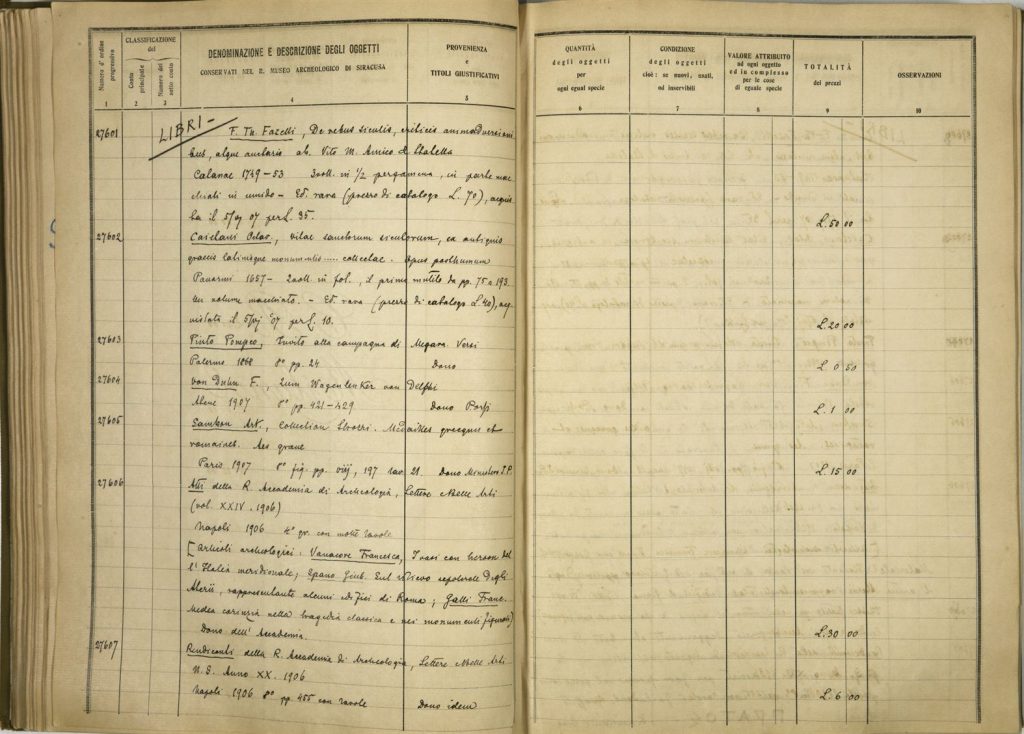 Numero d'ordine progressivo
CLASSIFICAZIONE
del
Conto principale
Numero del sotto conto
DENOMINAZIONE E DESCRIZIONE DEGLI OGGETTI
CONSERVATI NEL R. MUSEO ARCHEOLOGICO DI SIRACUSA
PROVENIENZA
e
TITOLI GIUSTIFICATIVI
1 2 3 4 5
LIBRI-
27601 F. Th. Fazelli, De rebus siculis, criticis animadversioni
bus, atque auctario ab. Vito M. Amico & Statella
Catanae 1749-53 3 voll. in 1/2 pergamena, in parte mac
chiati in umido - Ed. rara (prezzo di catalogo L. 70), acquis
ta il 5/vj 07 per L. 35.
27602 Caietani Octav., vitae sanctorum siculorum, ex antiquis
graecis latinisque monumentis ..... collectae. Opus posthumum
Panormi 1657- 2 voll. in fol., il primo mutilo da pp. 75 a 193.
un volume macchiato. - Ed. rara (prezzo di catalogo L. 40), acq
uistata il 5/vj '07 per L. 10.
27603 Pinto Pompeo, Invito alla campagna di Megara. Versi
Palermo 1868 8° pp. 24 Dono
27604 von Duhn F., Zum Wagenlenker von Delphi
Atene 1907 8° pp. 421-429 Dono
27605 Sambon Art., Collection Strozzi. Médailles grecques et
romaines. Aes grave
Paris 1907 8° fig. pp. viij, 197 tav. 21. Dono
27606 Atti della R. Accademia di Archeologia, Lettere e Belle Arti
(vol. XXIV. 1906)
Napoli 1906 4° gr. con molte tavole
[Articoli archeologici: Vanacore Francesca, I vasi con heroon del
l'Italia meridionale; Spano Gius. Sul rilievo sepolcrale degli
Aterii, rappresentante alcuni edifici di Roma; Galli Franc.
Medea corinzia nella tragedia classica e nei monumenti figurati]
Dono dell'Accademia.
27607 Rendiconti della R. Accademia di Archeologia, Lettere e Belle Arti
N. S. Anno XX. 1906
Napoli 1906 8° pp. 455 con tavole Dono idem
QUANTITÀ
degli oggetti
per
ogni egual specie
CONDIZIONE
degli oggetti
cioè: se nuovi, usati,
od inservibili
VALORE ATTRIBUITO
ad ogni oggetto
ed in complesso
per le cose
di eguale specie
TOTALITÀ
dei prezzi
OSSERVAZIONI
6 7 8 9 10
L. 50 00
L. 20 00
L. 0 50
L. 1 00
L. 15 00
L. 30 00
L. 6 00